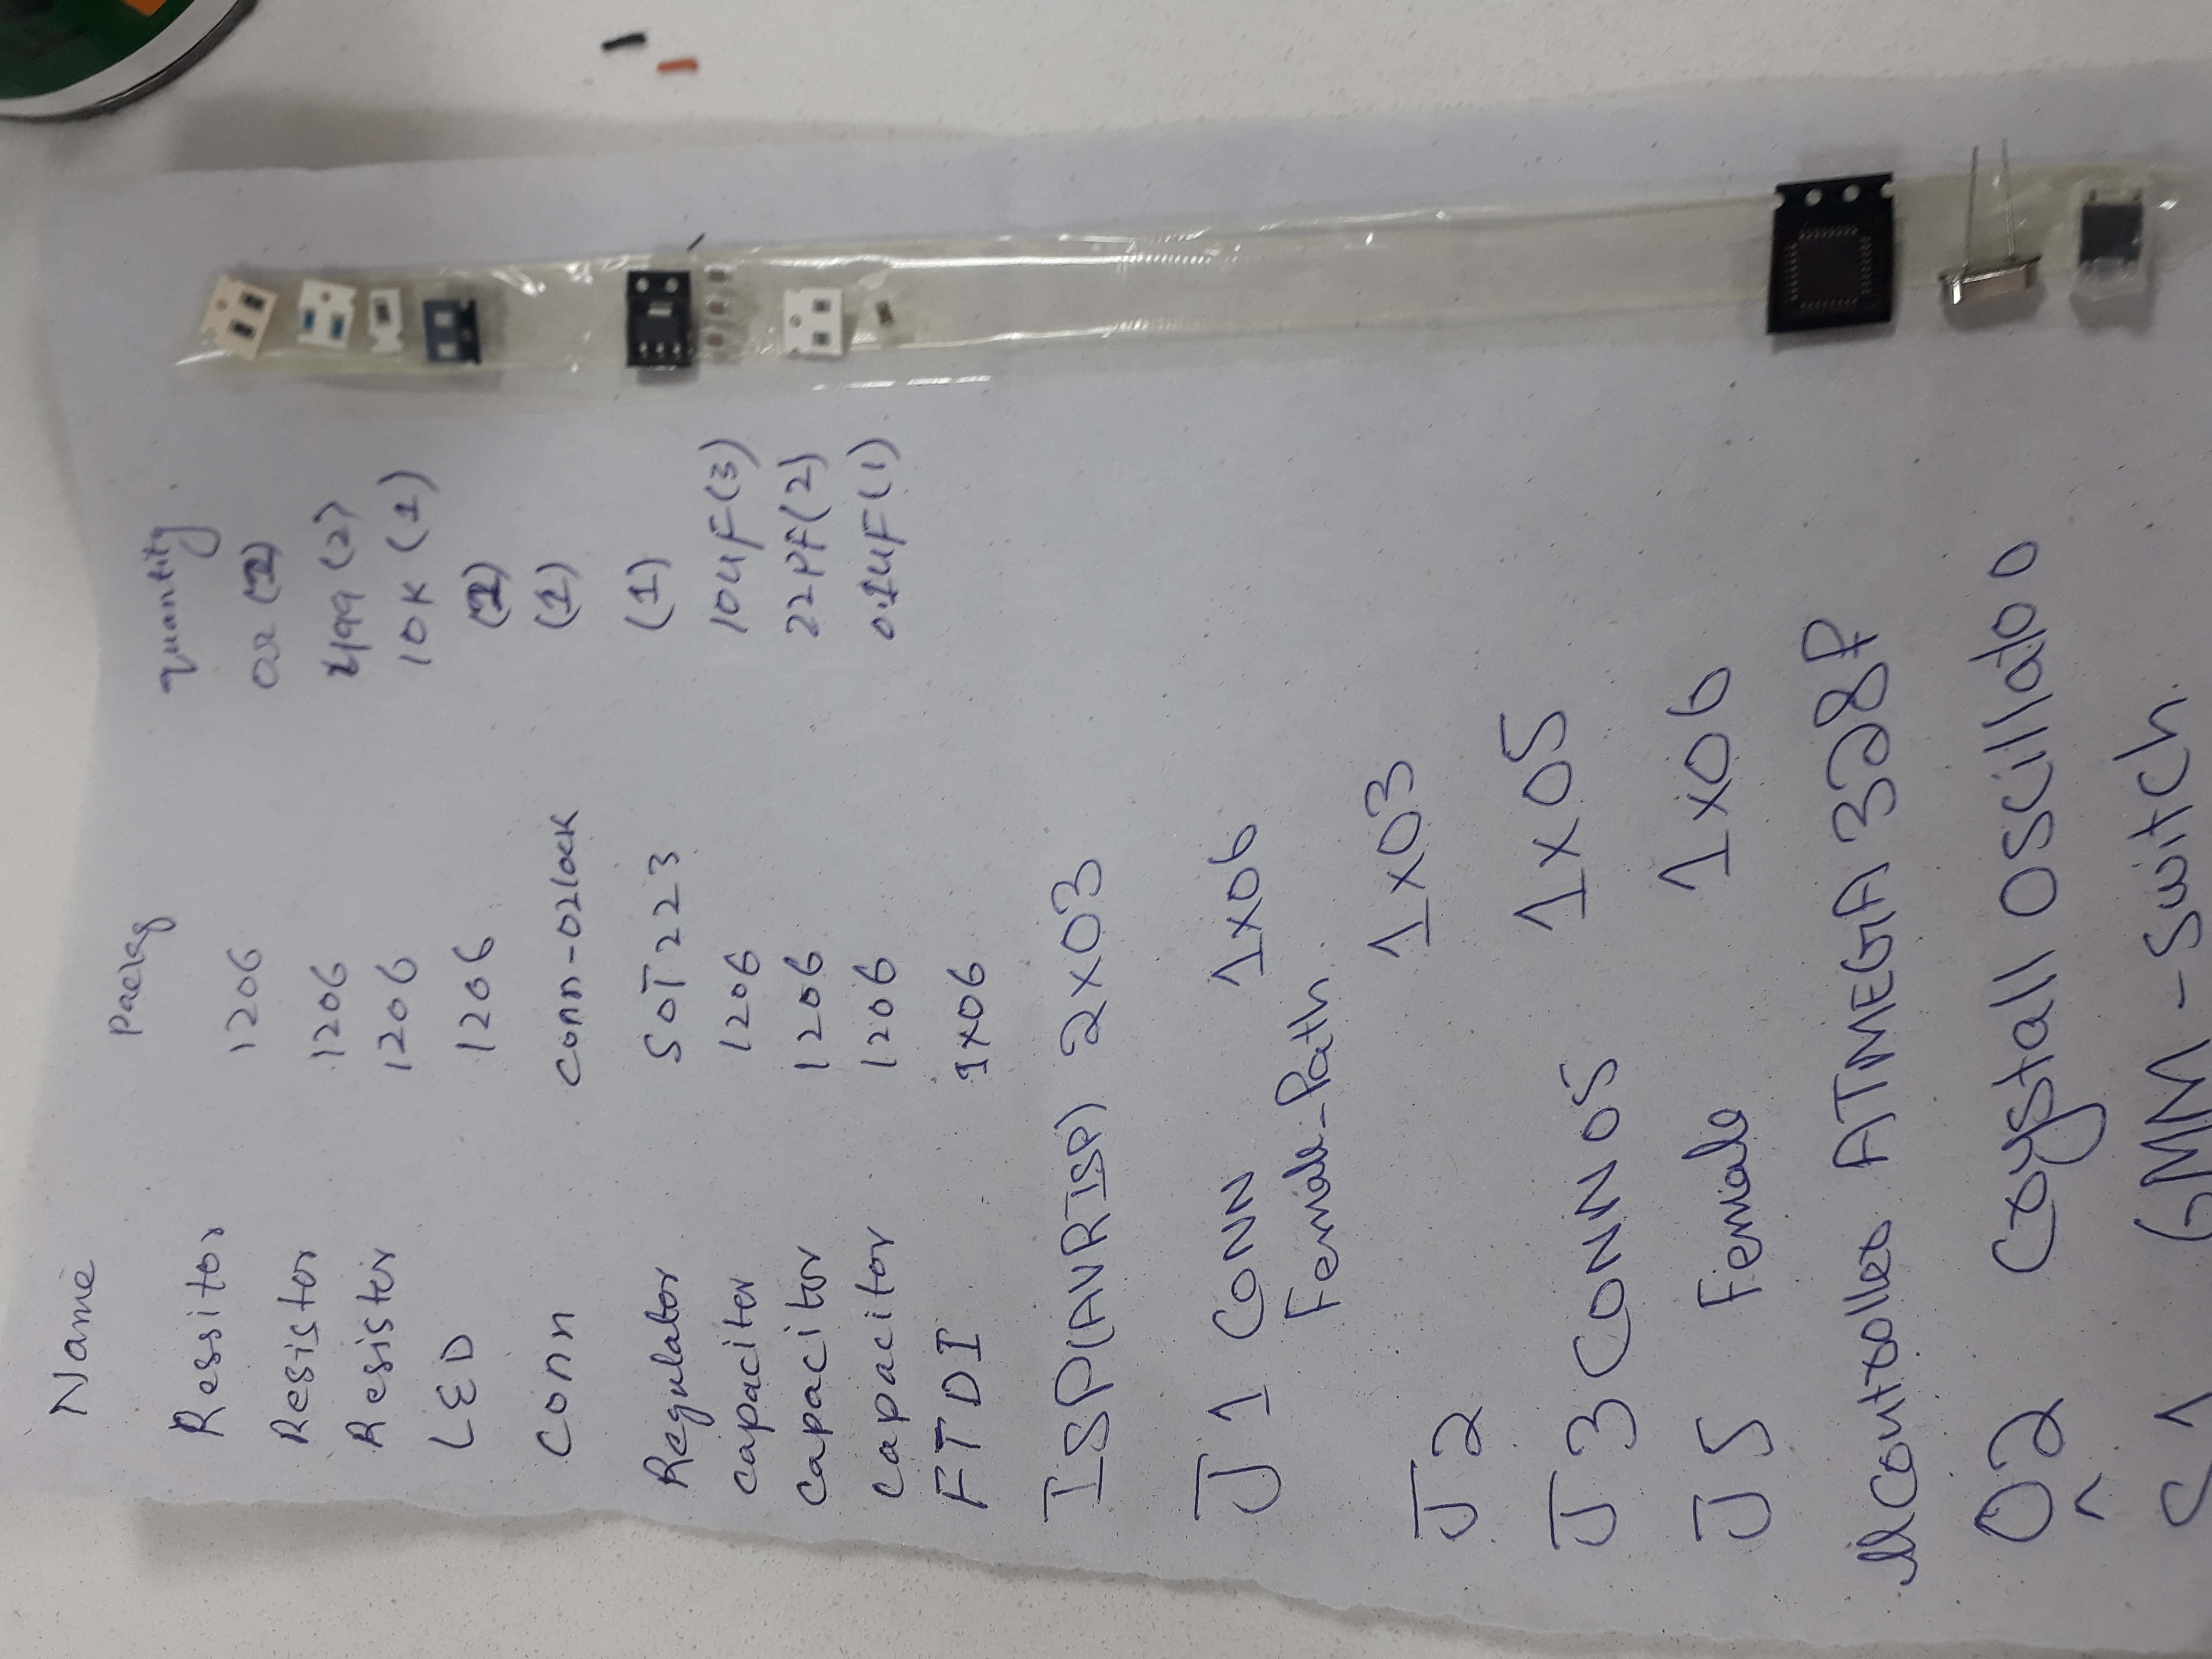 Name Packg quantity
Ressitor 1206 0Ω (2)
Resistor 1206 499 (2)
Resistor 1206 10K (1)
LED 1206 (2)
Conn conn-02lock (1)
Regulator SOT223 (1)
capacitor 1206 10uF(3)
capacitor 1206 22PF(2)
capacitor 1206 0.1uF(1)
FTDI 1x06
ISP(AVRISP) 2x03
J1 CONN 1x06
Female-Path
J2 1x03
J3 CONN05 1x05
J5 Female 1x06
Controller ATMEGA328P
Crystall oscillator
S1 6MM-switch.